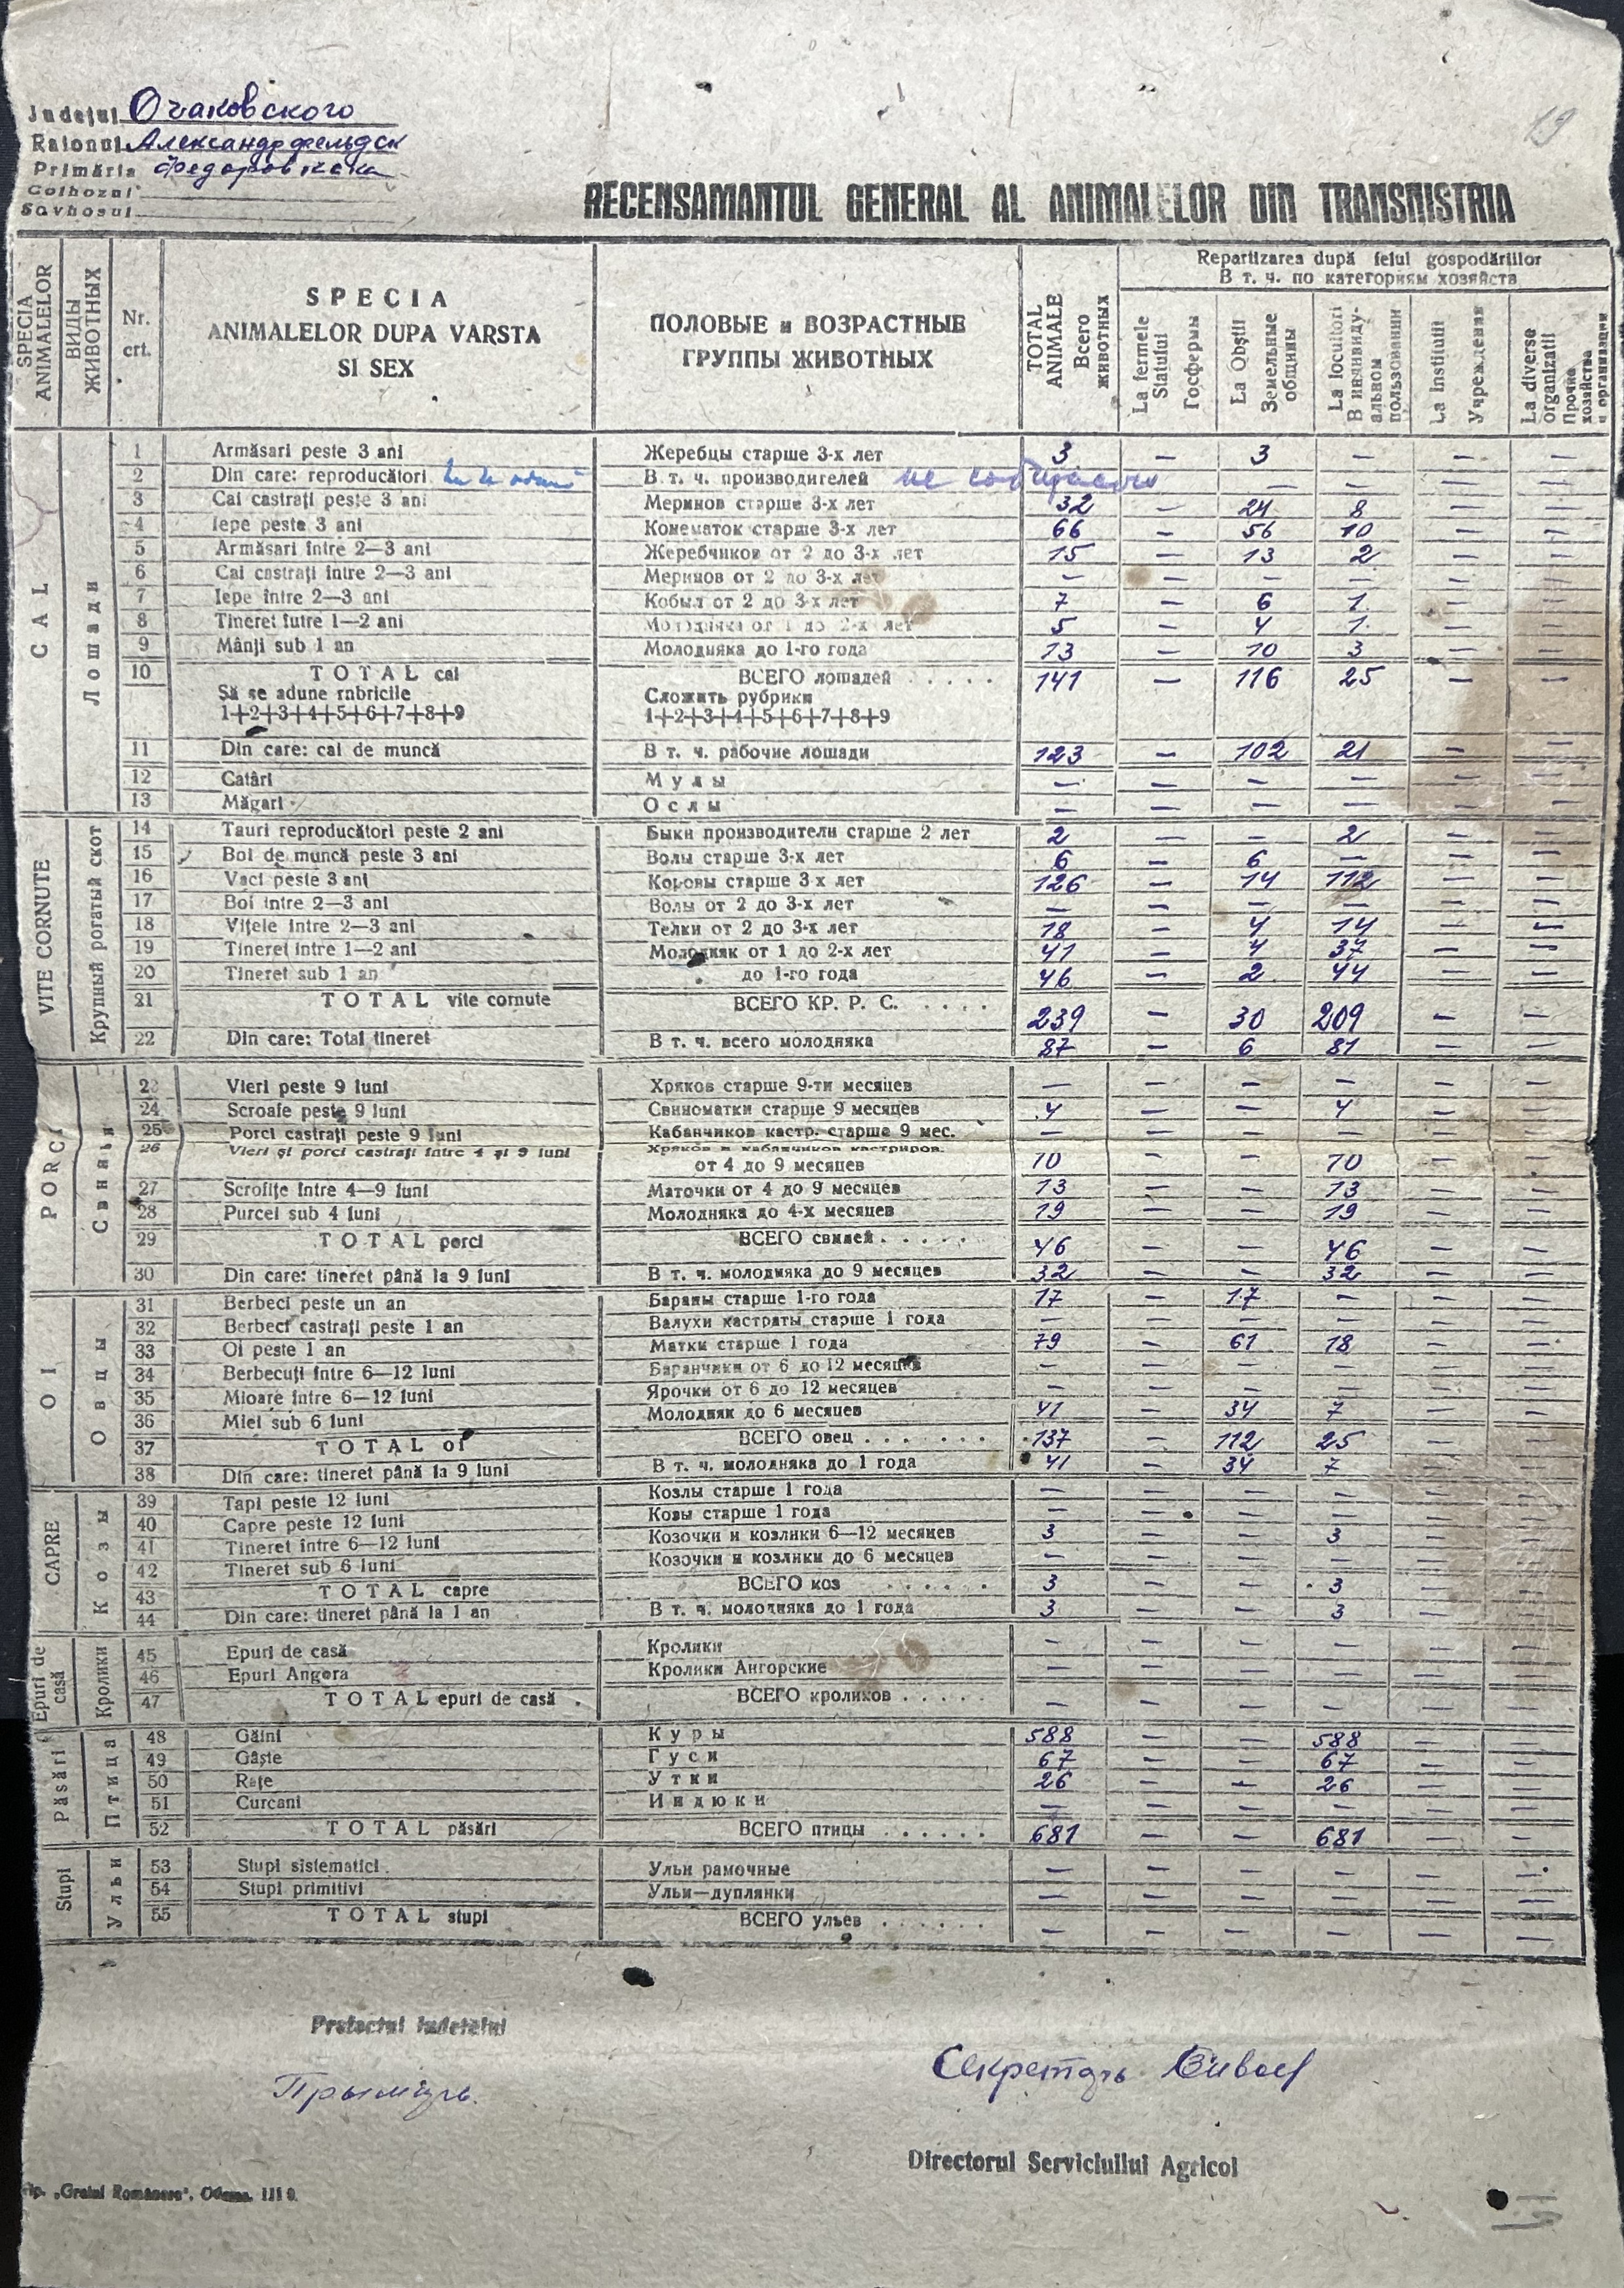 19
Judeţul Очаковского
Raionul Александрфельдск
Primăria Федоровska
Colhozul
Savhosul
RECENSAMANTUL GENERAL AL ANIMALELOR DIN TRANSNISTRIA
SPECIA ANIMALELOR
ВИДЫ ЖИВОТНЫХ
Nr. crt.
SPECIA ANIMALELOR DUPA VARSTA SI SEX
ПОЛОВЫЕ и ВОЗРАСТНЫЕ ГРУППЫ ЖИВОТНЫХ
TOTAL ANIMALE Всего животных
Repartizarea după felul gospodăriilor
В т. ч. по категориям хозяйств
La fermele Statului Госфермы
La Obştii Земельные общины
La locuitori В индивидуальном пользовании
La Instituii Учреждения
La diverse organizatii Прочие хозяйства и организации
CAL Лошади
1 Armăsari peste 3 ani Жеребцы старше 3-х лет 3 — 3 — — —
2 Din care: reproducători В т. ч. производителей не — — — —
3 Cai castraţi peste 3 ani Меринов старше 3-х лет 32 — 24 8 — —
4 Iepe peste 3 ani Конематок старше 3-х лет 66 — 56 10 — —
5 Armăsari între 2—3 ani Жеребчиков от 2 до 3-х лет 15 — 13 2 — —
6 Cai castraţi între 2—3 ani Меринов от 2 до 3-х лет — — — — — —
7 Iepe între 2—3 ani Кобыл от 2 до 3-х лет 7 — 6 1 — —
8 Tineret îutre 1—2 ani Молодняка от 1 до 2-х лет 5 — 4 1 — —
9 Mânji sub 1 an Молодняка до 1-го года 13 — 10 3 — —
10 TOTAL cai ВСЕГО лошадей . . . . . 141 — 116 25 — —
Şă se adune rnbricile Сложить рубрики
1+2+3+4+5+6+7+8+9 1+2+3+4+5+6+7+8+9
11 Din care: cai de muncă В т. ч. рабочие лошади 123 — 102 21 — —
12 Catâri Мулы — — — — — —
13 Măgari Ослы — — — — — —
VITE CORNUTE Крупный рогатый скот
14 Tauri reproducători peste 2 ani Быки производители старше 2 лет 2 — — 2 — —
15 Boi de muncă peste 3 ani Волы старше 3-х лет 6 — 6 — — —
16 Vaci peste 3 ani Коровы старше 3-х лет 126 — 14 112 — —
17 Boi între 2—3 ani Волы от 2 до 3-х лет — — — — — —
18 Viţele între 2—3 ani Телки от 2 до 3-х лет 18 — 4 14 — —
19 Tineret între 1—2 ani Молодняк от 1 до 2-х лет 41 — 4 37 — —
20 Tineret sub 1 an до 1-го года 46 — 2 44 — —
21 TOTAL vite cornute ВСЕГО КР. Р. С. . . . . 239 — 30 209 — —
22 Din care: Total tineret В т. ч. всего молодняка 87 — 6 81 — —
PORCI Свиньи
23 Vieri peste 9 luni Хряков старше 9-ти месяцев — — — — — —
24 Scroafe peste 9 luni Свиноматки старше 9 месяцев 4 — — 4 — —
25 Porci castraţi peste 9 luni Кабанчиков кастр. старше 9 мес. — — — — — —
26 Vieri şi porci castraţi între 4 şi 9 luni Хряков и кабанчиков кастриров.
от 4 до 9 месяцев 10 — — 10 — —
27 Scrofiţe între 4—9 luni Маточки от 4 до 9 месяцев 13 — — 13 — —
28 Purcei sub 4 luni Молодняка до 4-х месяцев 19 — — 19 — —
29 TOTAL porci ВСЕГО свиней . . . . . 46 — — 46 — —
30 Din care: tineret până la 9 luni В т. ч. молодняка до 9 месяцев 32 — — 32 — —
OI Овцы
31 Berbeci peste un an Бараны старше 1-го года 17 — 17 — — —
32 Berbeci castraţi peste 1 an Валухи кастраты старше 1 года — — — — — —
33 Oi peste 1 an Матки старше 1 года 79 — 61 18 — —
34 Berbecuţi între 6—12 luni Баранчики от 6 до 12 месяцев — — — — — —
35 Mioare între 6—12 luni Ярочки от 6 до 12 месяцев — — — — — —
36 Miei sub 6 luni Молодняк до 6 месяцев 41 — 34 7 — —
37 TOTAL oi ВСЕГО овец . . . . . . 137 — 112 25 — —
38 Din care: tineret până la 9 luni В т. ч. молодняка до 1 года 41 — 34 7 — —
CAPRE Козы
39 Tapi peste 12 luni Козлы старше 1 года — — — — — —
40 Capre peste 12 luni Козы старше 1 года — — — — — —
41 Tineret între 6—12 luni Козочки и козлики 6—12 месяцев 3 — — 3 — —
42 Tineret sub 6 luni Козочки и козлики до 6 месяцев — — — — — —
43 TOTAL capre ВСЕГО коз . . . . . . 3 — — 3 — —
44 Din care: tineret până la 1 an В т. ч. молодняка до 1 года 3 — — 3 — —
Epuri de casă Кролики
45 Epuri de casă Кролики — — — — — —
46 Epuri Angora Кролики Ангорские — — — — — —
47 TOTAL epuri de casă . ВСЕГО кроликов . . . . . — — — — — —
Păsări Птица
48 Găini Куры 588 — — 588 — —
49 Gâşte Гуси 67 — — 67 — —
50 Raţe Утки 26 — — 26 — —
51 Curcani Индюки — — — — — —
52 TOTAL păsări ВСЕГО птицы . . . . . . 681 — — 681 — —
Stupi Ульи
53 Stupi sistematici Ульи рамочные — — — — — —
54 Stupi primitivi Ульи—дуплянки — — — — — —
55 TOTAL stupi ВСЕГО ульев . . . . . . — — — — — —
Prefectul judeţului
Прымарь
Секретарь
Directorul Serviciului Agricol
Tip. „Graiul Românesc". Odessa.